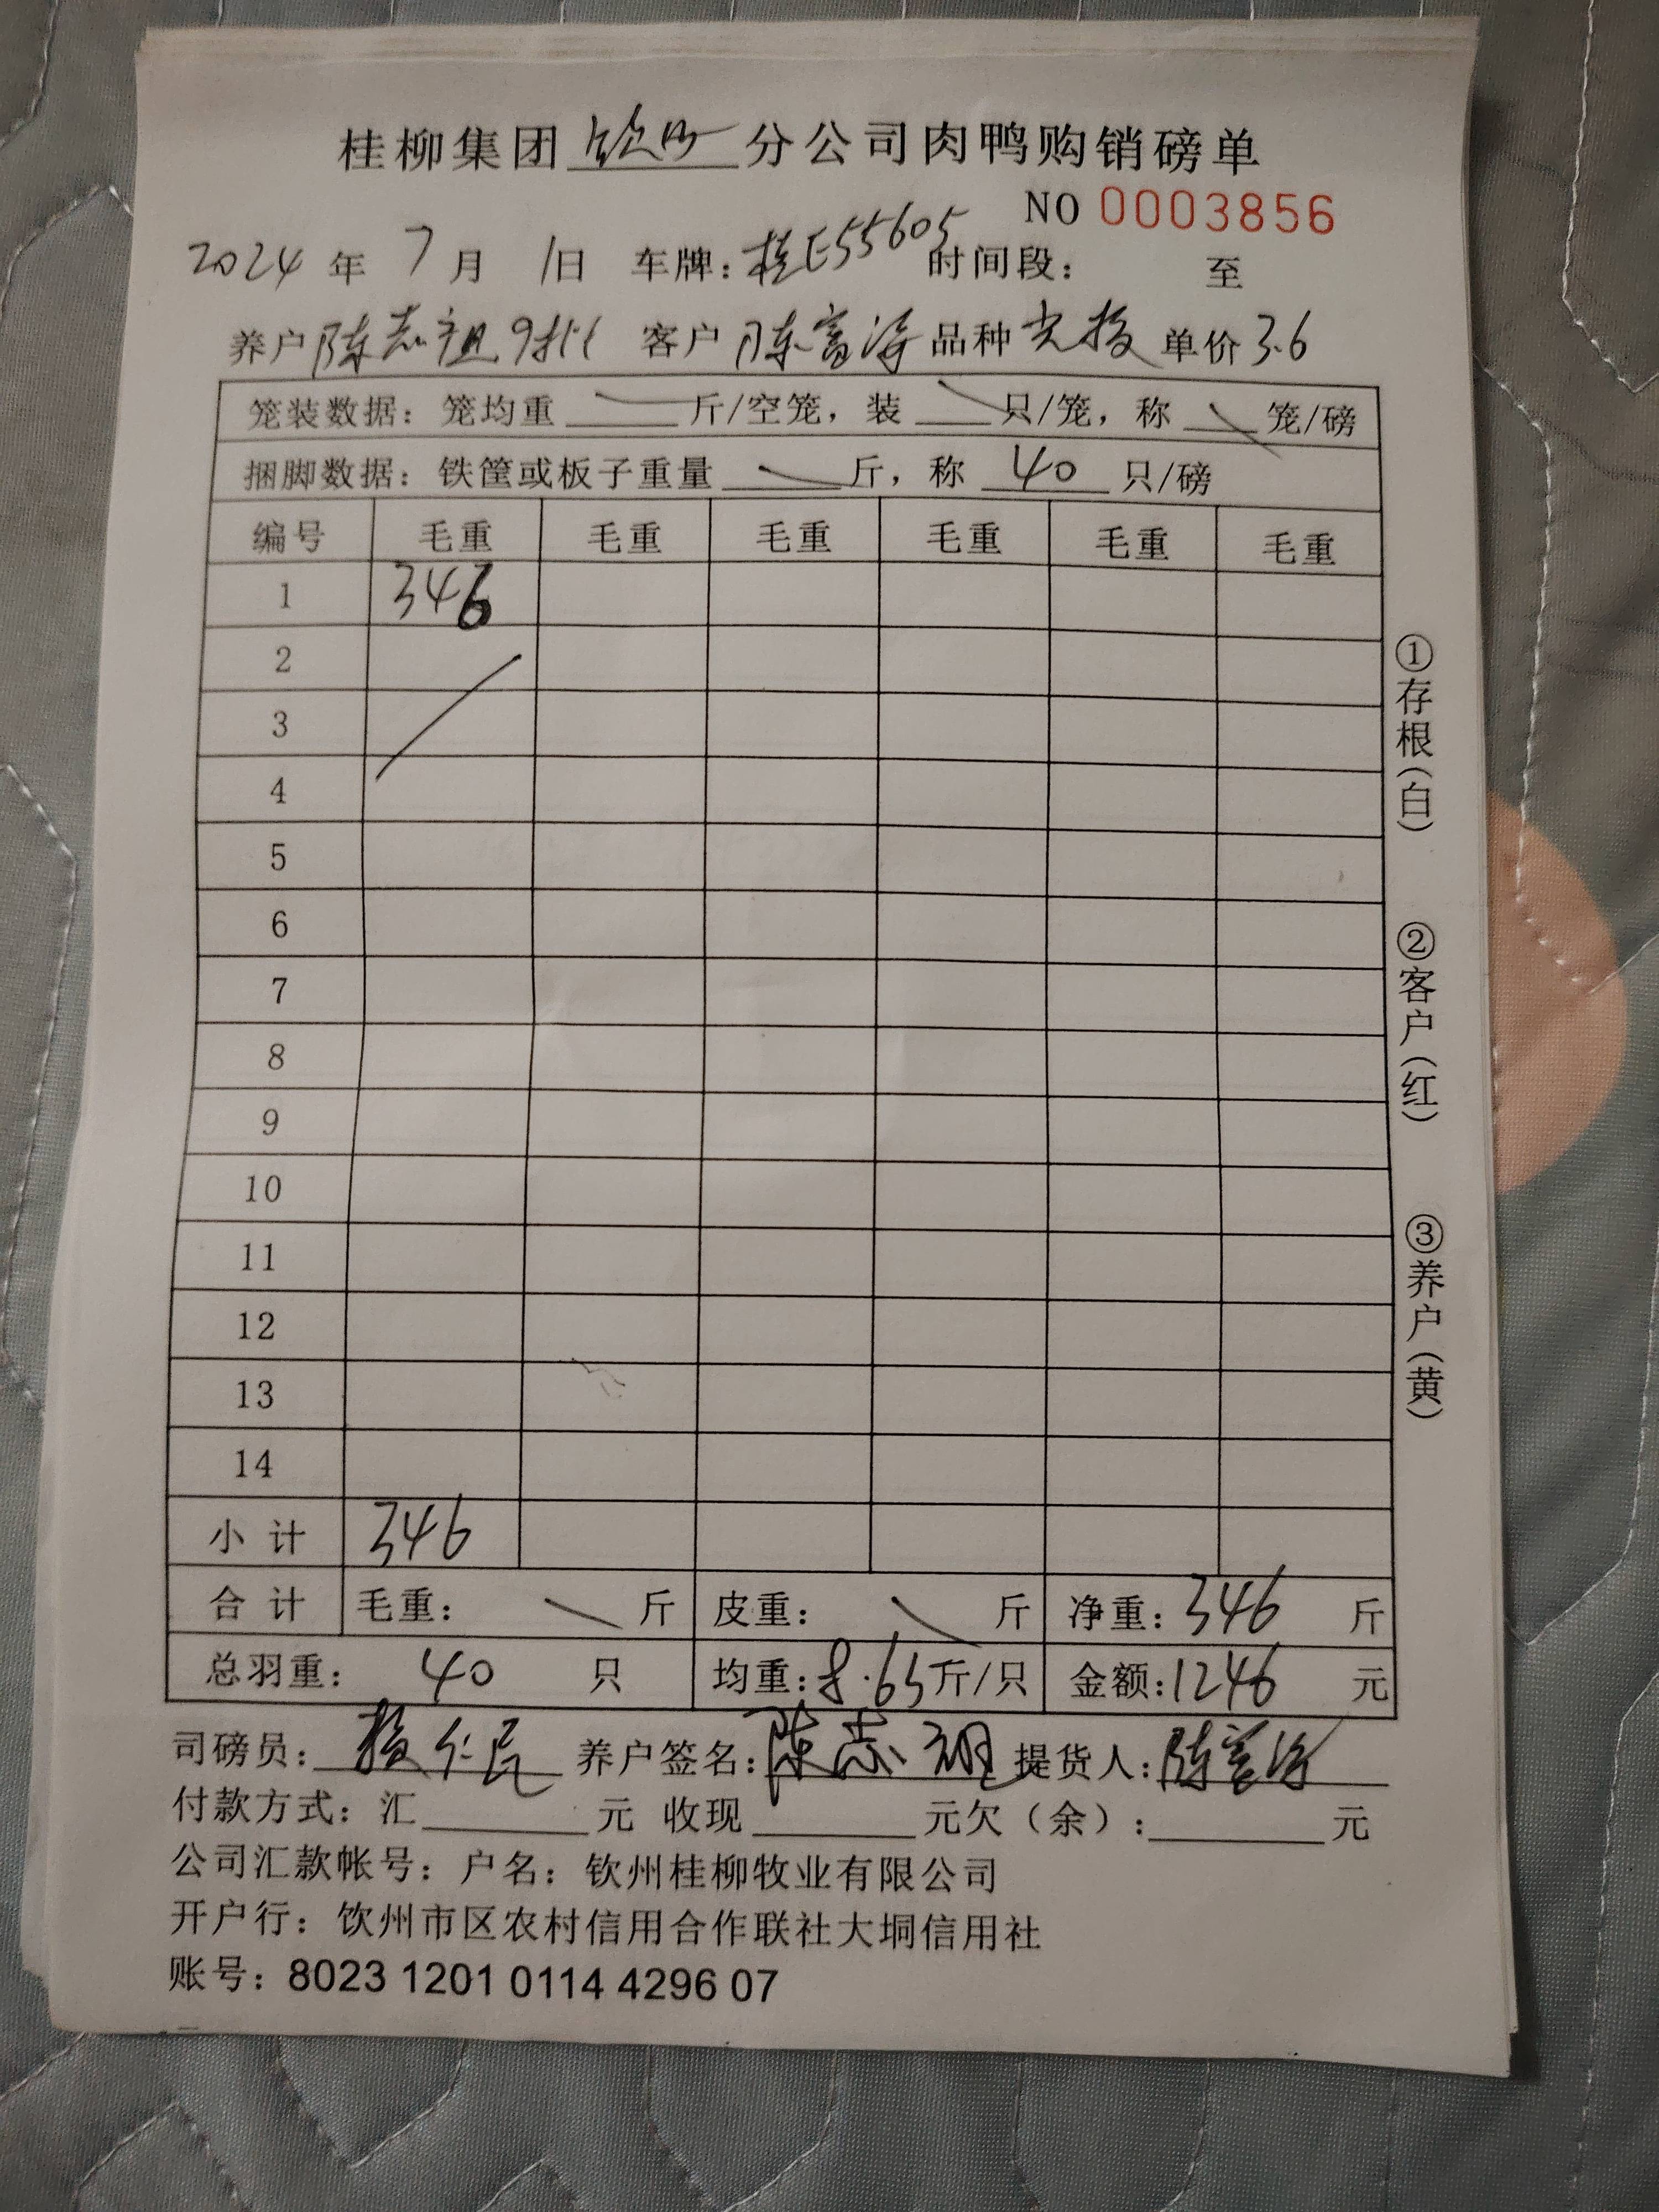 桂柳集团钦州分公司肉鸭购销磅单
NO 0003856
2024年7月1日 车牌:桂E55605 时间段: 至
养户陈志祖 客户陈富涛 品种 单价3.6
笼装数据: 笼均重 斤/空笼, 装 只/笼, 称 笼/磅
捆脚数据: 铁筐或板子重量 斤, 称 40 只/磅
编号 毛重 毛重 毛重 毛重 毛重 毛重
1 346
2
3
4
5
6
7
8
9
10
11
12
13
14
小计 346
合计 毛重: 斤 皮重: 斤 净重: 346 斤
总羽重: 40 只 均重:8.65斤/只 金额:1246 元
司磅员: 养户签名:陈志祖 提货人:陈富涛
付款方式: 汇 元 收现 元欠(余): 元
公司汇款帐号: 户名: 钦州桂柳牧业有限公司
开户行: 钦州市区农村信用合作联社大垌信用社
账号: 8023 1201 0114 4296 07
①存根(白)
②客户(红)
③养户(黄)